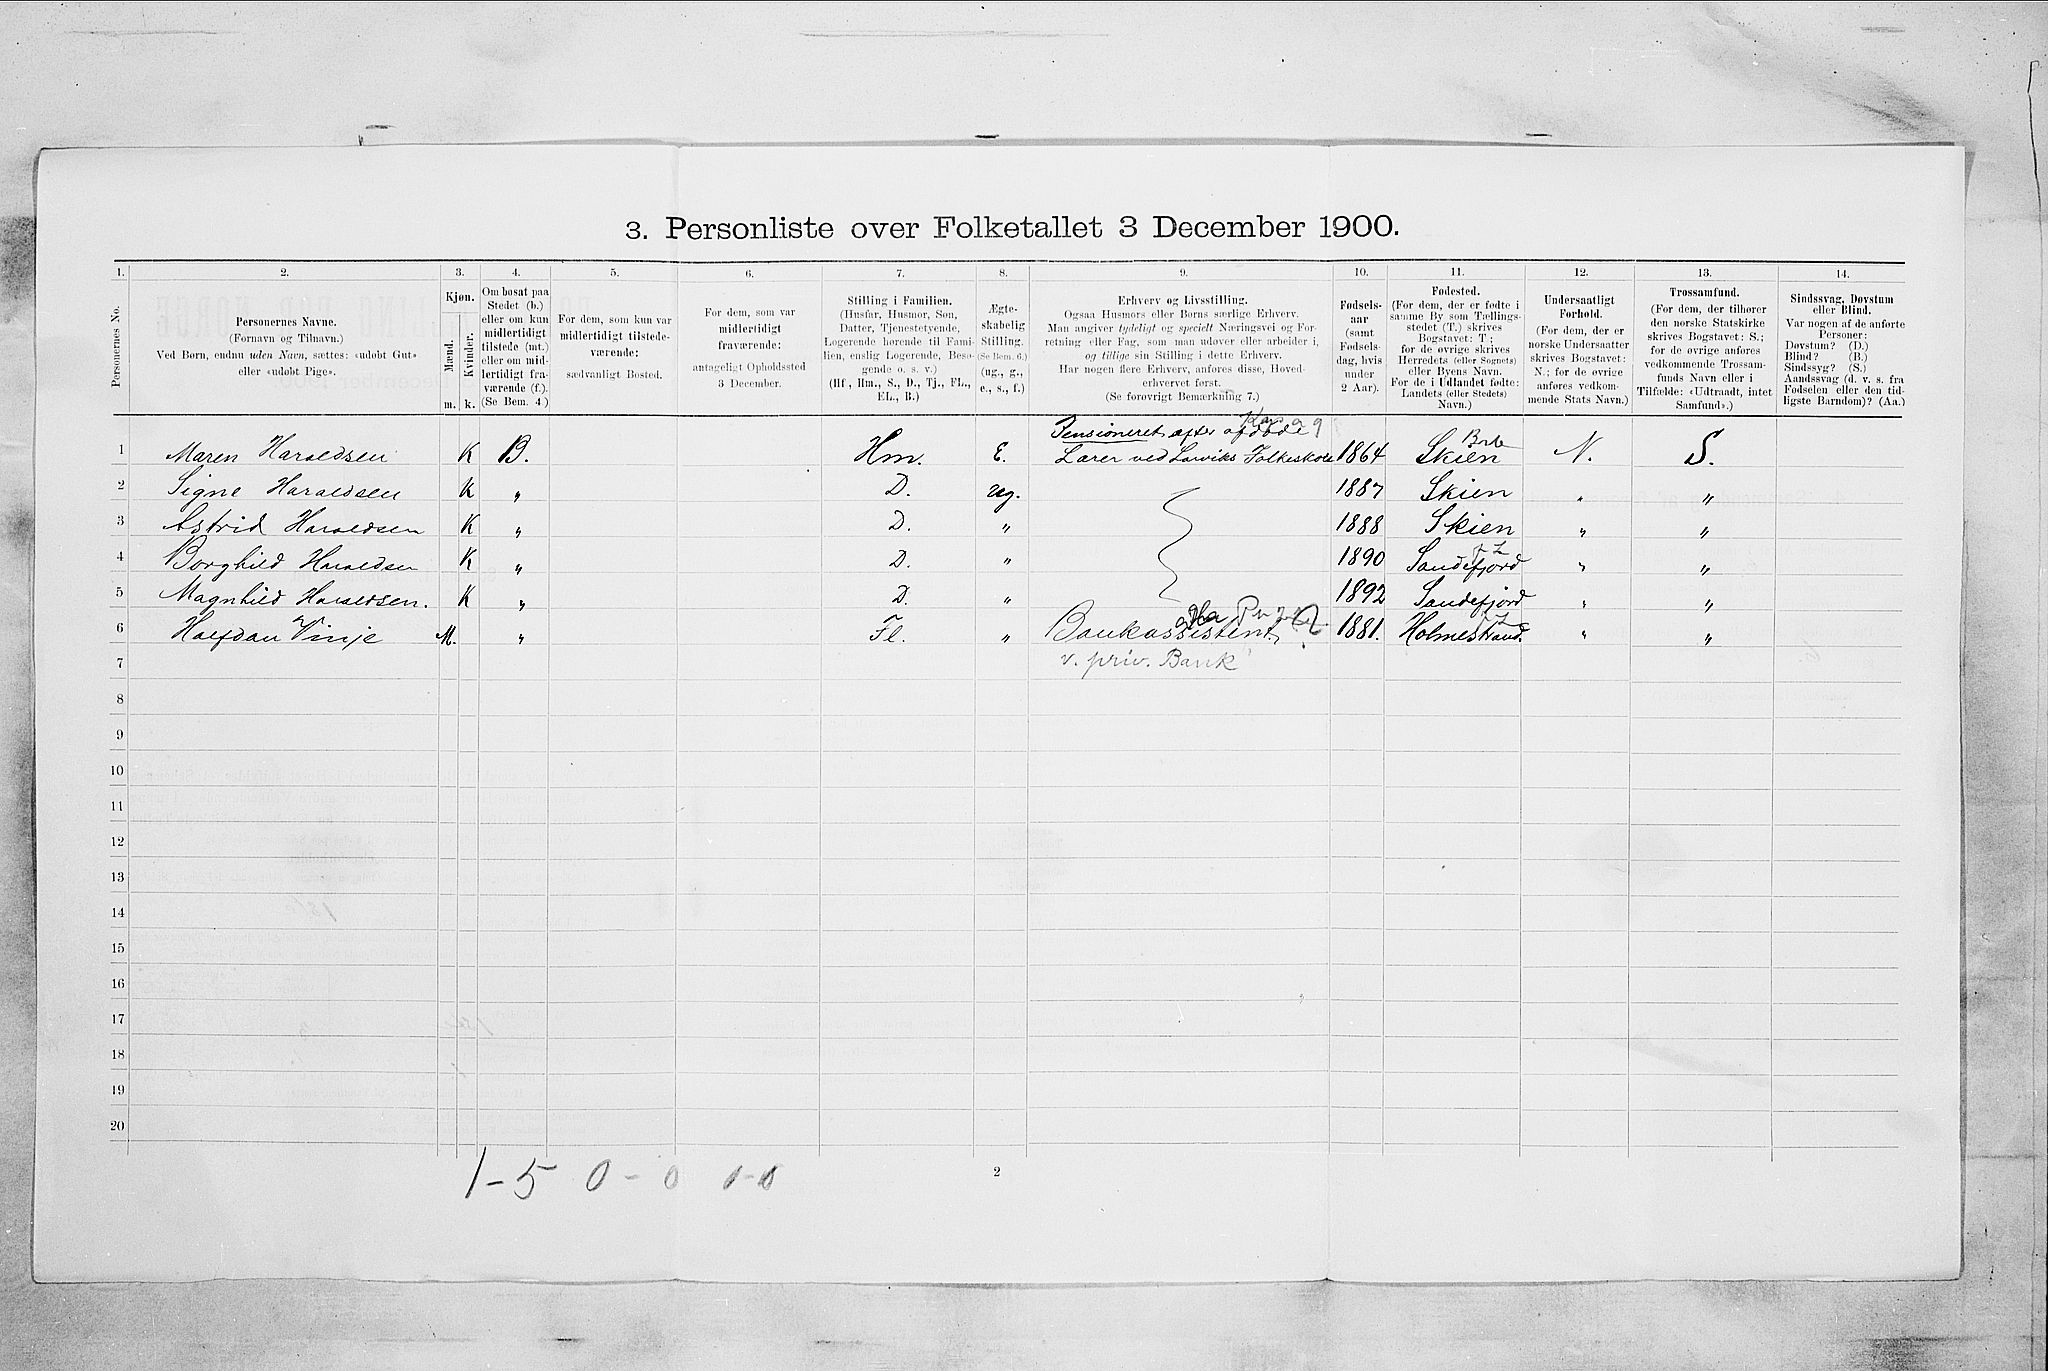 3. Personliste over Folketallet 3 December 1900.
1. 2. 3. 4. 5. 6. 7. 8. 9. 10. 11. 12. 13. 14.
Personernes No.
Personernes Navne.
(Fornavn og Tilnavn.)
Ved Børn, endnu uden Navn, sættes: «udøbt Gut»
eller «udøbt Pige».
Kjøn.
Mænd.
Kvinder.
m. k.
Om bosat paa
Stedet (b.)
eller om kun
midlertidigt
tilstede (mt.)
eller om mid-
lertidigt fra-
værende (f.).
(Se Bem. 4.)
For dem, som kun var
midlertidigt tilstede-
værende:
sædvanligt Bosted.
For dem, som var
midlertidigt
fraværende:
antageligt Opholdssted
3 December.
Stilling i Familien.
(Husfar, Husmor, Søn,
Datter, Tjenestetyende,
Logerende hørende til Fami-
lien, enslig Logerende, Besø-
gende o. s. v.)
(Hf., Hm., S., D., Tj., FL.,
EL., B.)
Ægte-
skabelig
Stilling.
(Se Bem. 6.)
(ug., g.,
e., s., f.)
Erhverv og Livsstilling.
Ogsaa Husmors eller Børns særlige Erhverv.
Man angiver tydeligt og specielt Næringsvei og For-
retning eller Fag, som man udøver eller arbeider i,
og tillige sin Stilling i dette Erhverv.
Har nogen flere Erhverv, anføres disse, Hoved-
erhvervet først.
(Se forøvrigt Bemærkning 7.)
Fødsels-
aar
(samt
Fødsels-
dag, hvis
under
2 Aar).
Fødested.
(For dem, der er fødte i
samme By som Tællings-
stedet (T.) skrives
Bogstavet: T;
for de øvrige skrives
Herredets (eller Sognets)
eller Byens Navn.
For de i Udlandet fødte:
Landets (eller Stedets)
Navn.)
Undersaatligt
Forhold.
(For dem, der er
norske Undersaatter
skrives Bogstavet:
N.; for de øvrige
anføres vedkom-
mende Stats Navn.)
Trossamfund.
(For dem, der tilhører
den norske Statskirke
skrives Bogstavet: S.;
for de øvrige anføres
vedkommende Trossam-
funds Navn eller i
Tilfælde: «Udtraadt, intet
Samfund».)
Sindssvag, Døvstum
eller Blind.
Var nogen af de anførte
Personer:
Døvstum? (D.)
Blind? (B.)
Sindssyg? (S.)
Aandssvag (d. v. s. fra
Fødselen eller den tid-
ligste Barndom)? (Aa.)
Pensioneret efter afdøde
1 Maren Haraldsen K B. Hm. E. Lærer ved Larviks Folkeskole 1864 Skien N. S.
2 Signe Haraldsen K " D. ug. 1887 Skien " "
3 Astrid Haraldsen K " D. " 1888 Skien " "
4 Borghild Haraldsen K " D. " 1890 Sandefjord " "
5 Magnhild Haraldsen. K " D. " 1892 Sandefjord " "
6 Halfdan Vinje M. " Fl. " Bankassistent 1881. Holmestrand. " "
7 v. priv. Bank
8
9
10
11
12
13
14
15
16
17
18
19
20
1-5 0-0 0-0
2